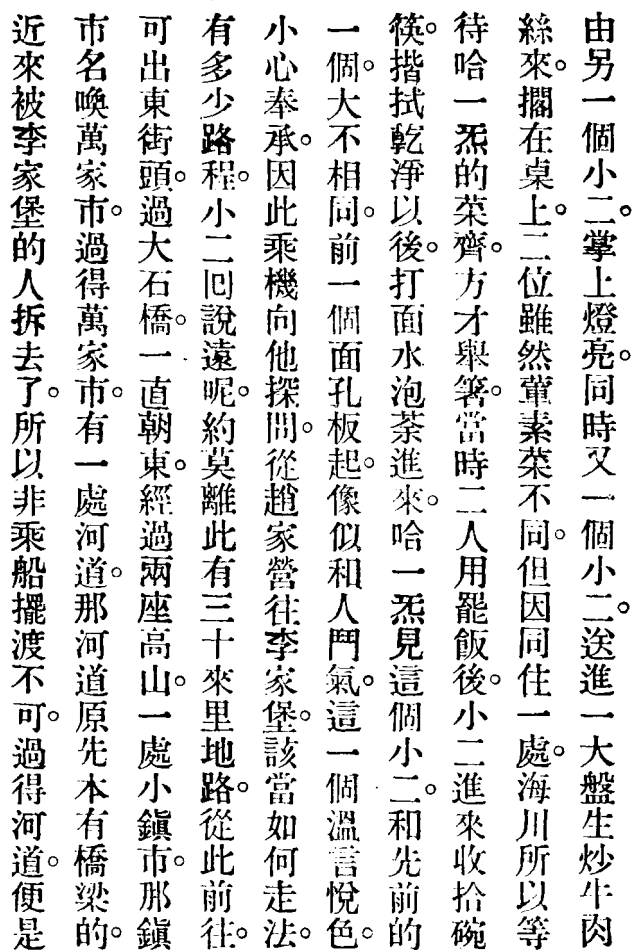 由另一個小二。掌上燈亮。同時又一個小二。送進一大盤生炒牛肉
絲來。擱在桌上。二位雖然葷素菜不同。但因同住一處。海川所以等
待哈一炁的菜齊。方才舉箸。當時二人用罷飯後。小二進來收拾碗
筷。揩拭乾淨以後。打面水泡茶進來。哈一炁見這個小二。和先前的
一個。大不相同。前一個面孔板起。像似和人鬥氣。這一個溫言悅色。
小心奉承。因此乘機向他探問。從趙家營往李家堡。該當如何走法。
有多少路程。小二回說遠呢。約莫離此有三十來里地路。從此前往。
可出東街頭。過大石橋。一直朝東。經過兩座高山。一處小鎮市。那鎮
市名喚萬家市。過得萬家市。有一處河道。那河道原先本有橋梁的。
近來被李家堡的人拆去了。所以非乘船擺渡不可。過得河道。便是